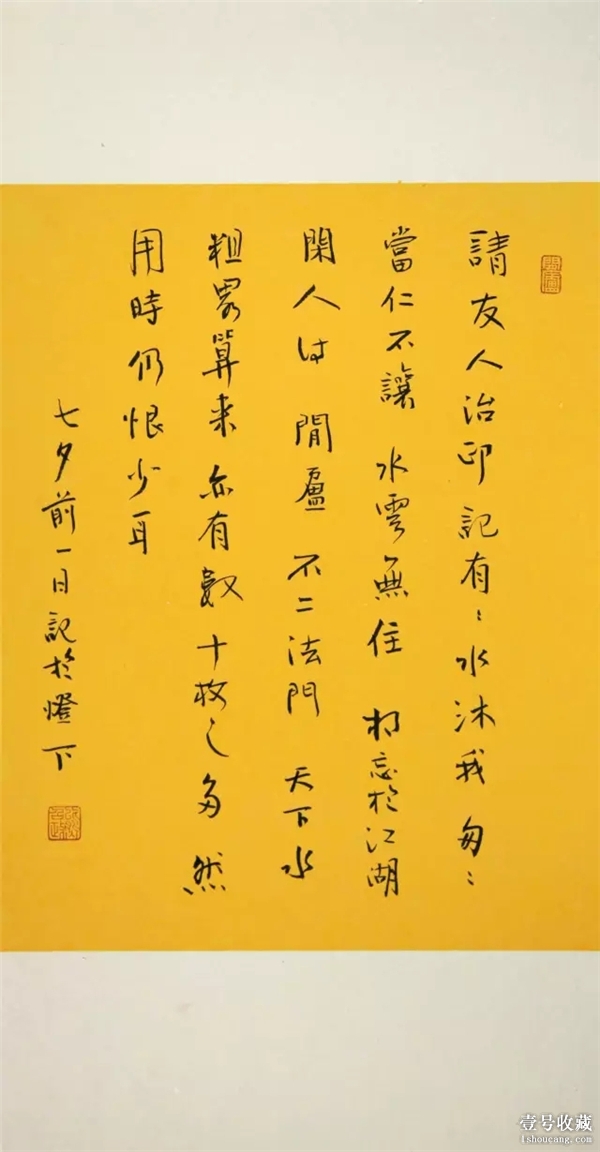 請友人治印記有〻水沐我匆〻
當仁不讓 水雲無住 相忘於江湖
閑人過 閒廬 不二法門 天下水
粗畧算来亦有數十枚之多 然
用時仍恨少耳
七夕前一日記於燈下
壹号收藏
1shoucang.com